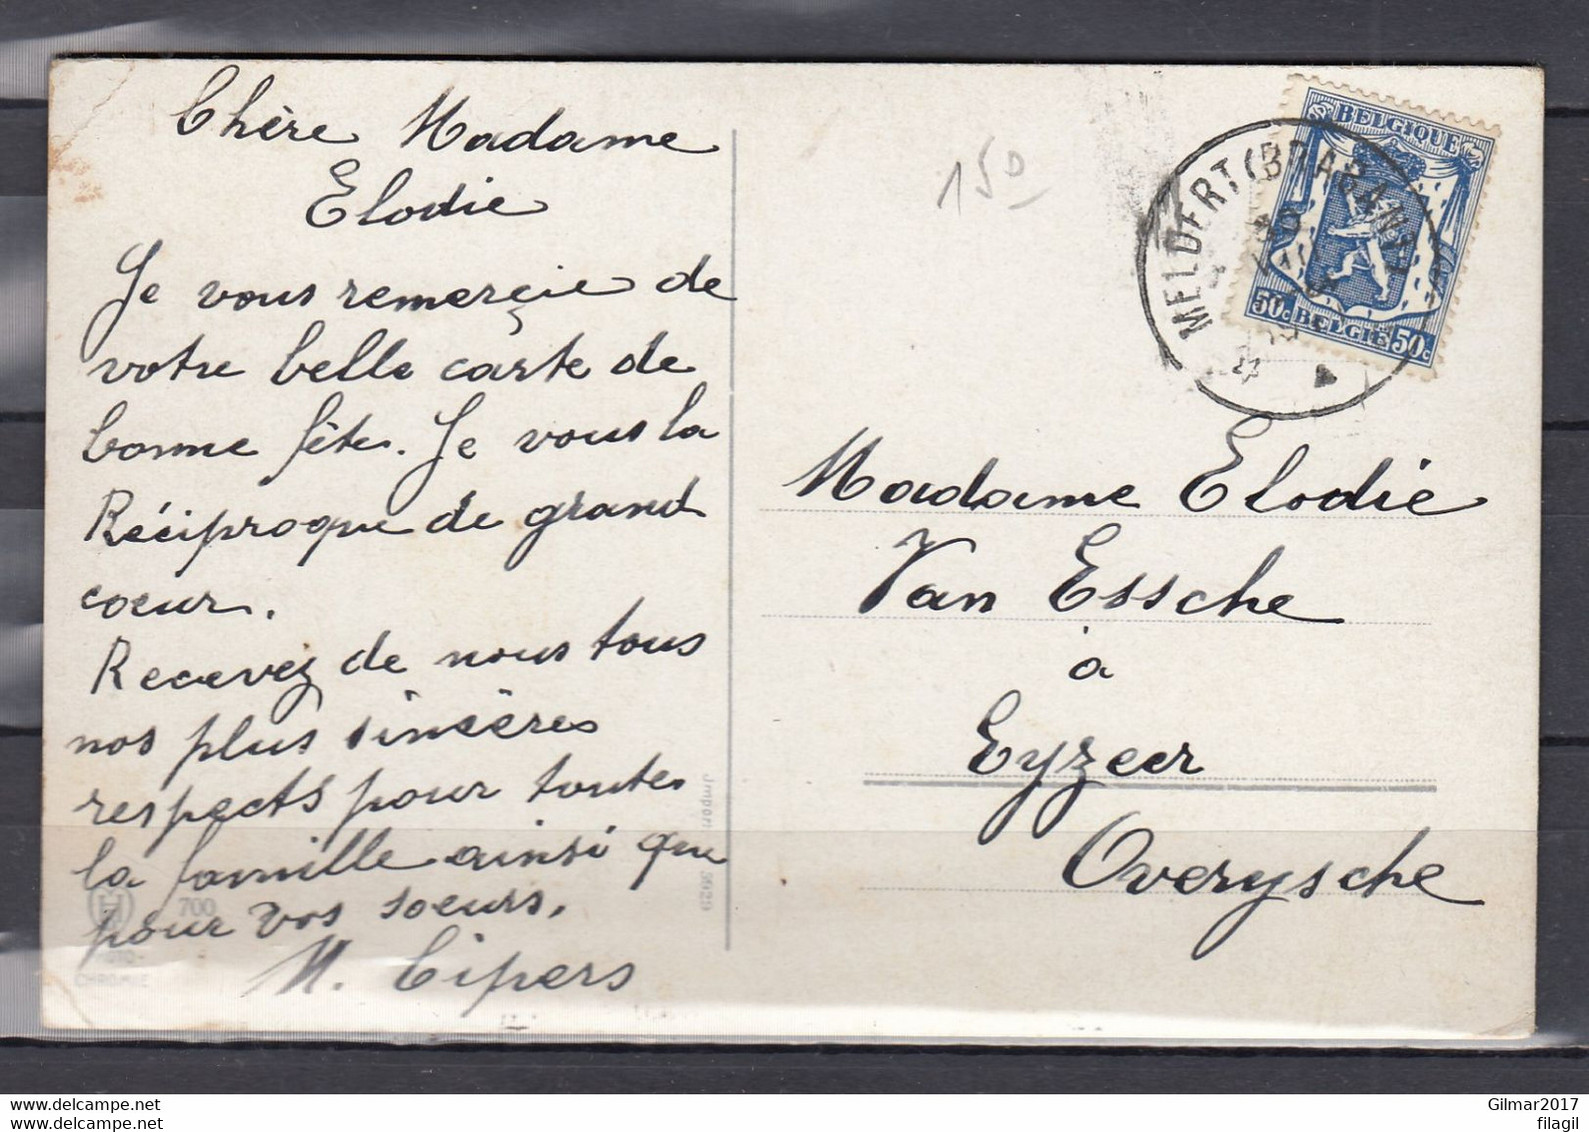 Chère Madame
Elodie
Je vous remerçie de
votre belle carte de
bonne fête. Je vous la
Réciproque de grand
coeur.
Recevez de nous tous
nos plus sincères
respects pour toute
la famille ainsi que
pour vos soeurs.
M. Cipers
150
MELDERT (BRABANT)
BELGIQUE
50c BELGIË 50c
Madame Elodie
Van Essche
à
Eyzeer
Overysche
Import
3929
700
CHROMIE
delcampe.net
delcampe.net
Gilmar2017
filagil